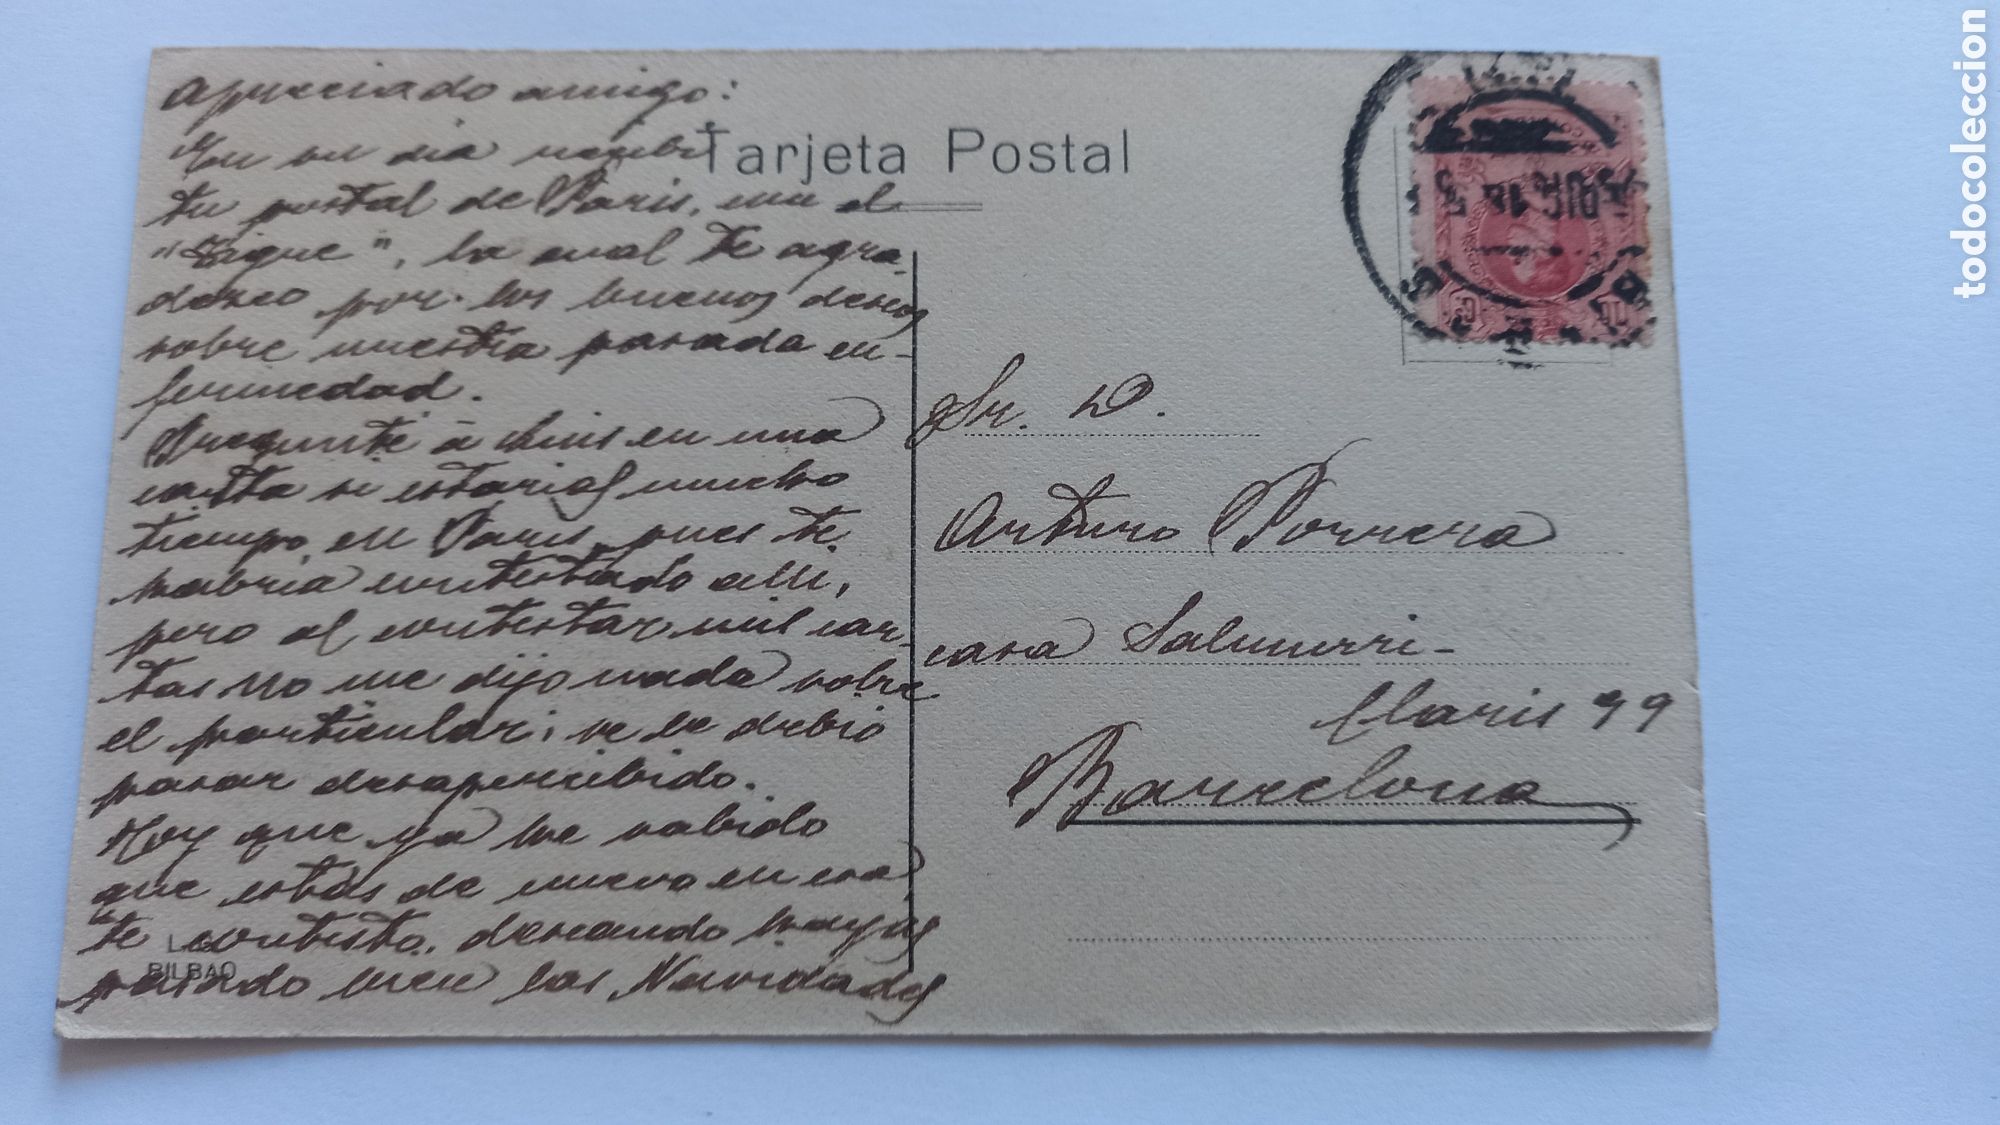 Apreciado amigo:
En su dia recibi
tu postal de Paris, con el
"Sigue", la cual te agra-
dezco por los buenos deseos
sobre nuestra pasada en-
fermedad.
Pregunté á Luis en una
carta si estarias mucho
tiempo en Paris, pues te
habria contestado alli,
pero al contestar mis car-
tas no me dijo nada sobre
el particular; se le debió
pasar desapercibido.
Hoy que ya he sabido
que estás de nuevo en esa,
te contesto, deseando hayas
pasado bien las Navidades
Tarjeta Postal
L.G.
BILBAO
Sr. D.
Arturo Porrera
casa Salmurri-
Claris 99
Barcelona
todocoleccion